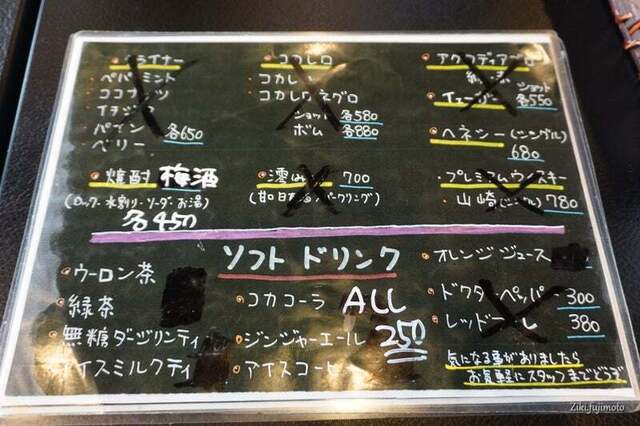 コカレロ
ペパーミント
コカレロネグロ
ショット 各580
ボム 各880
パイン
ベリー
各650
ショット
各550
ヘネシー(シングル)
680
焼酎 梅酒
(ロック・水割り・ソーダー・お湯)
各450
700
プレミアムウィスキー
山崎 780
ソフトドリンク
ウーロン茶
緑茶
無糖ダージリンティ
アイスミルクティ
コカコーラ
ジンジャーエール
アイスコーヒー
ALL
250
オレンジジュース
ドクターペッパー 300
レッドブル 380
気になる事がありましたら
お気軽にスタッフまでどうぞ
Ziki.fujimoto